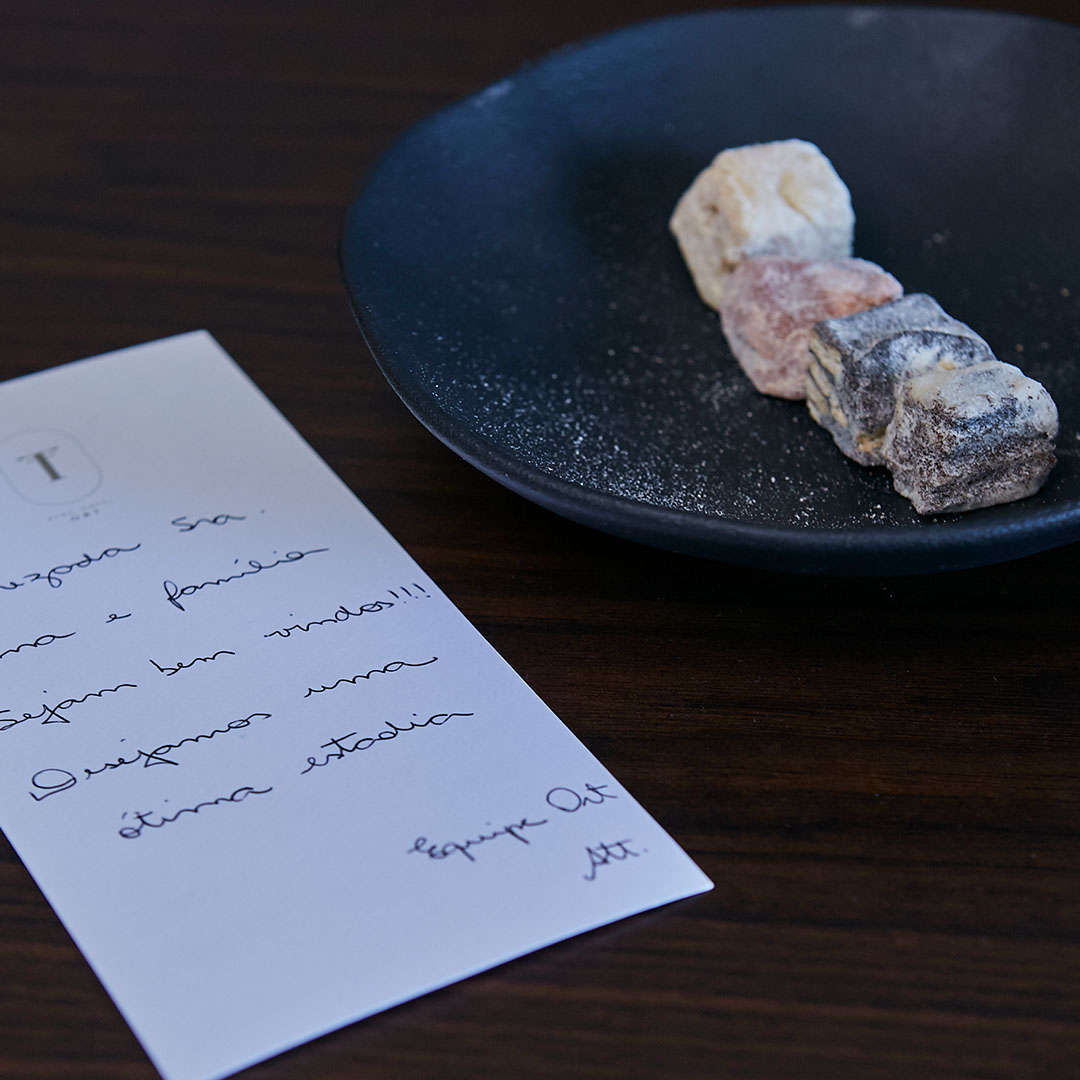 I
ORT
ezada Sra.
ma e família
Sejam bem vindos!!!
Desejamos uma
ótima estadia
Equipe Ort
Att.